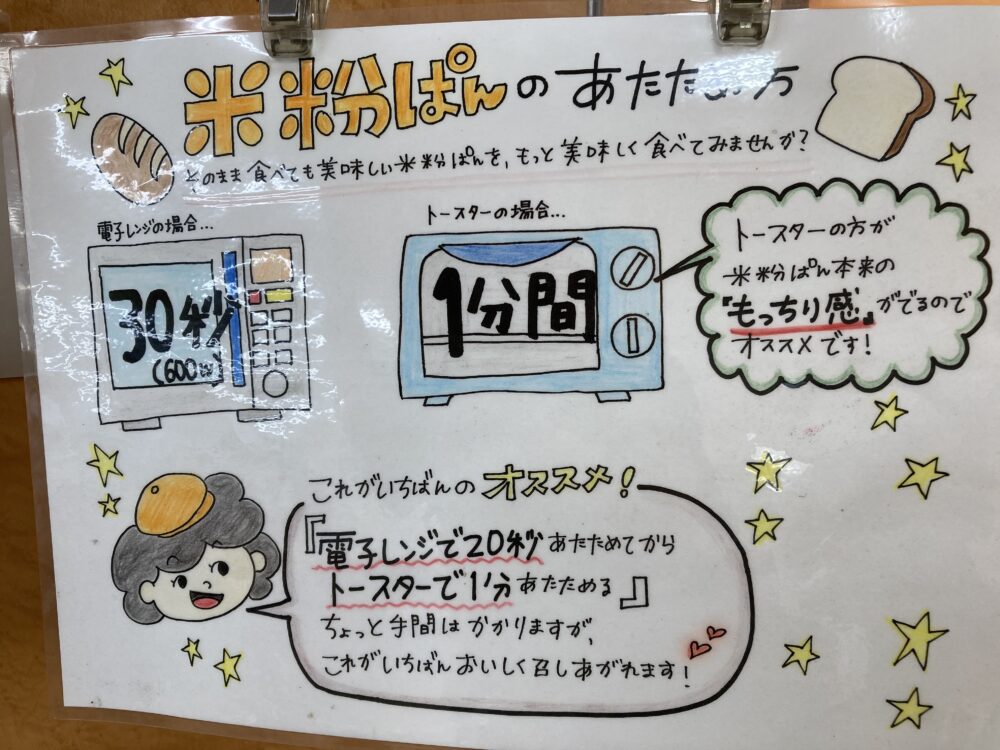 米粉ぱんのあたためカ
そのまま食べても美味しい米粉ぱんを、もっと美味しく食べてみませんか?
電子レンジの場合...
30秒
(600w)
トースターの場合...
1分間
トースターの方が
米粉ぱん本来の
『もっちり感』がでるので
オススメです!
これがいちばんのオススメ!
『電子レンジで20秒あたためてから
トースターで1分あたためる』
ちょっと手間はかかりますが、
これがいちばんおいしく召しあがれます!